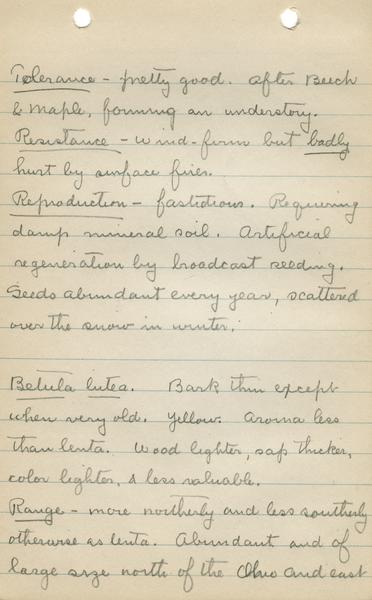 Tolerance - pretty good. After Beech
& Maple, forming an understory.
Resistance - wind-firm but badly
hurt by surface fires.
Reproduction - fastidious. Requiring
damp mineral soil. Artificial
regeneration by broadcast seeding.
Seeds abundant every year, scattered
over the snow in winter.
Betula lutea. Bark thin except
when very old. Yellow. Aroma less
than lenta. Wood lighter, sap thicker,
color lighter, & less valuable.
Range - more northerly and less southerly
otherwise as lenta. Abundant and of
large size north of the Ohio and east